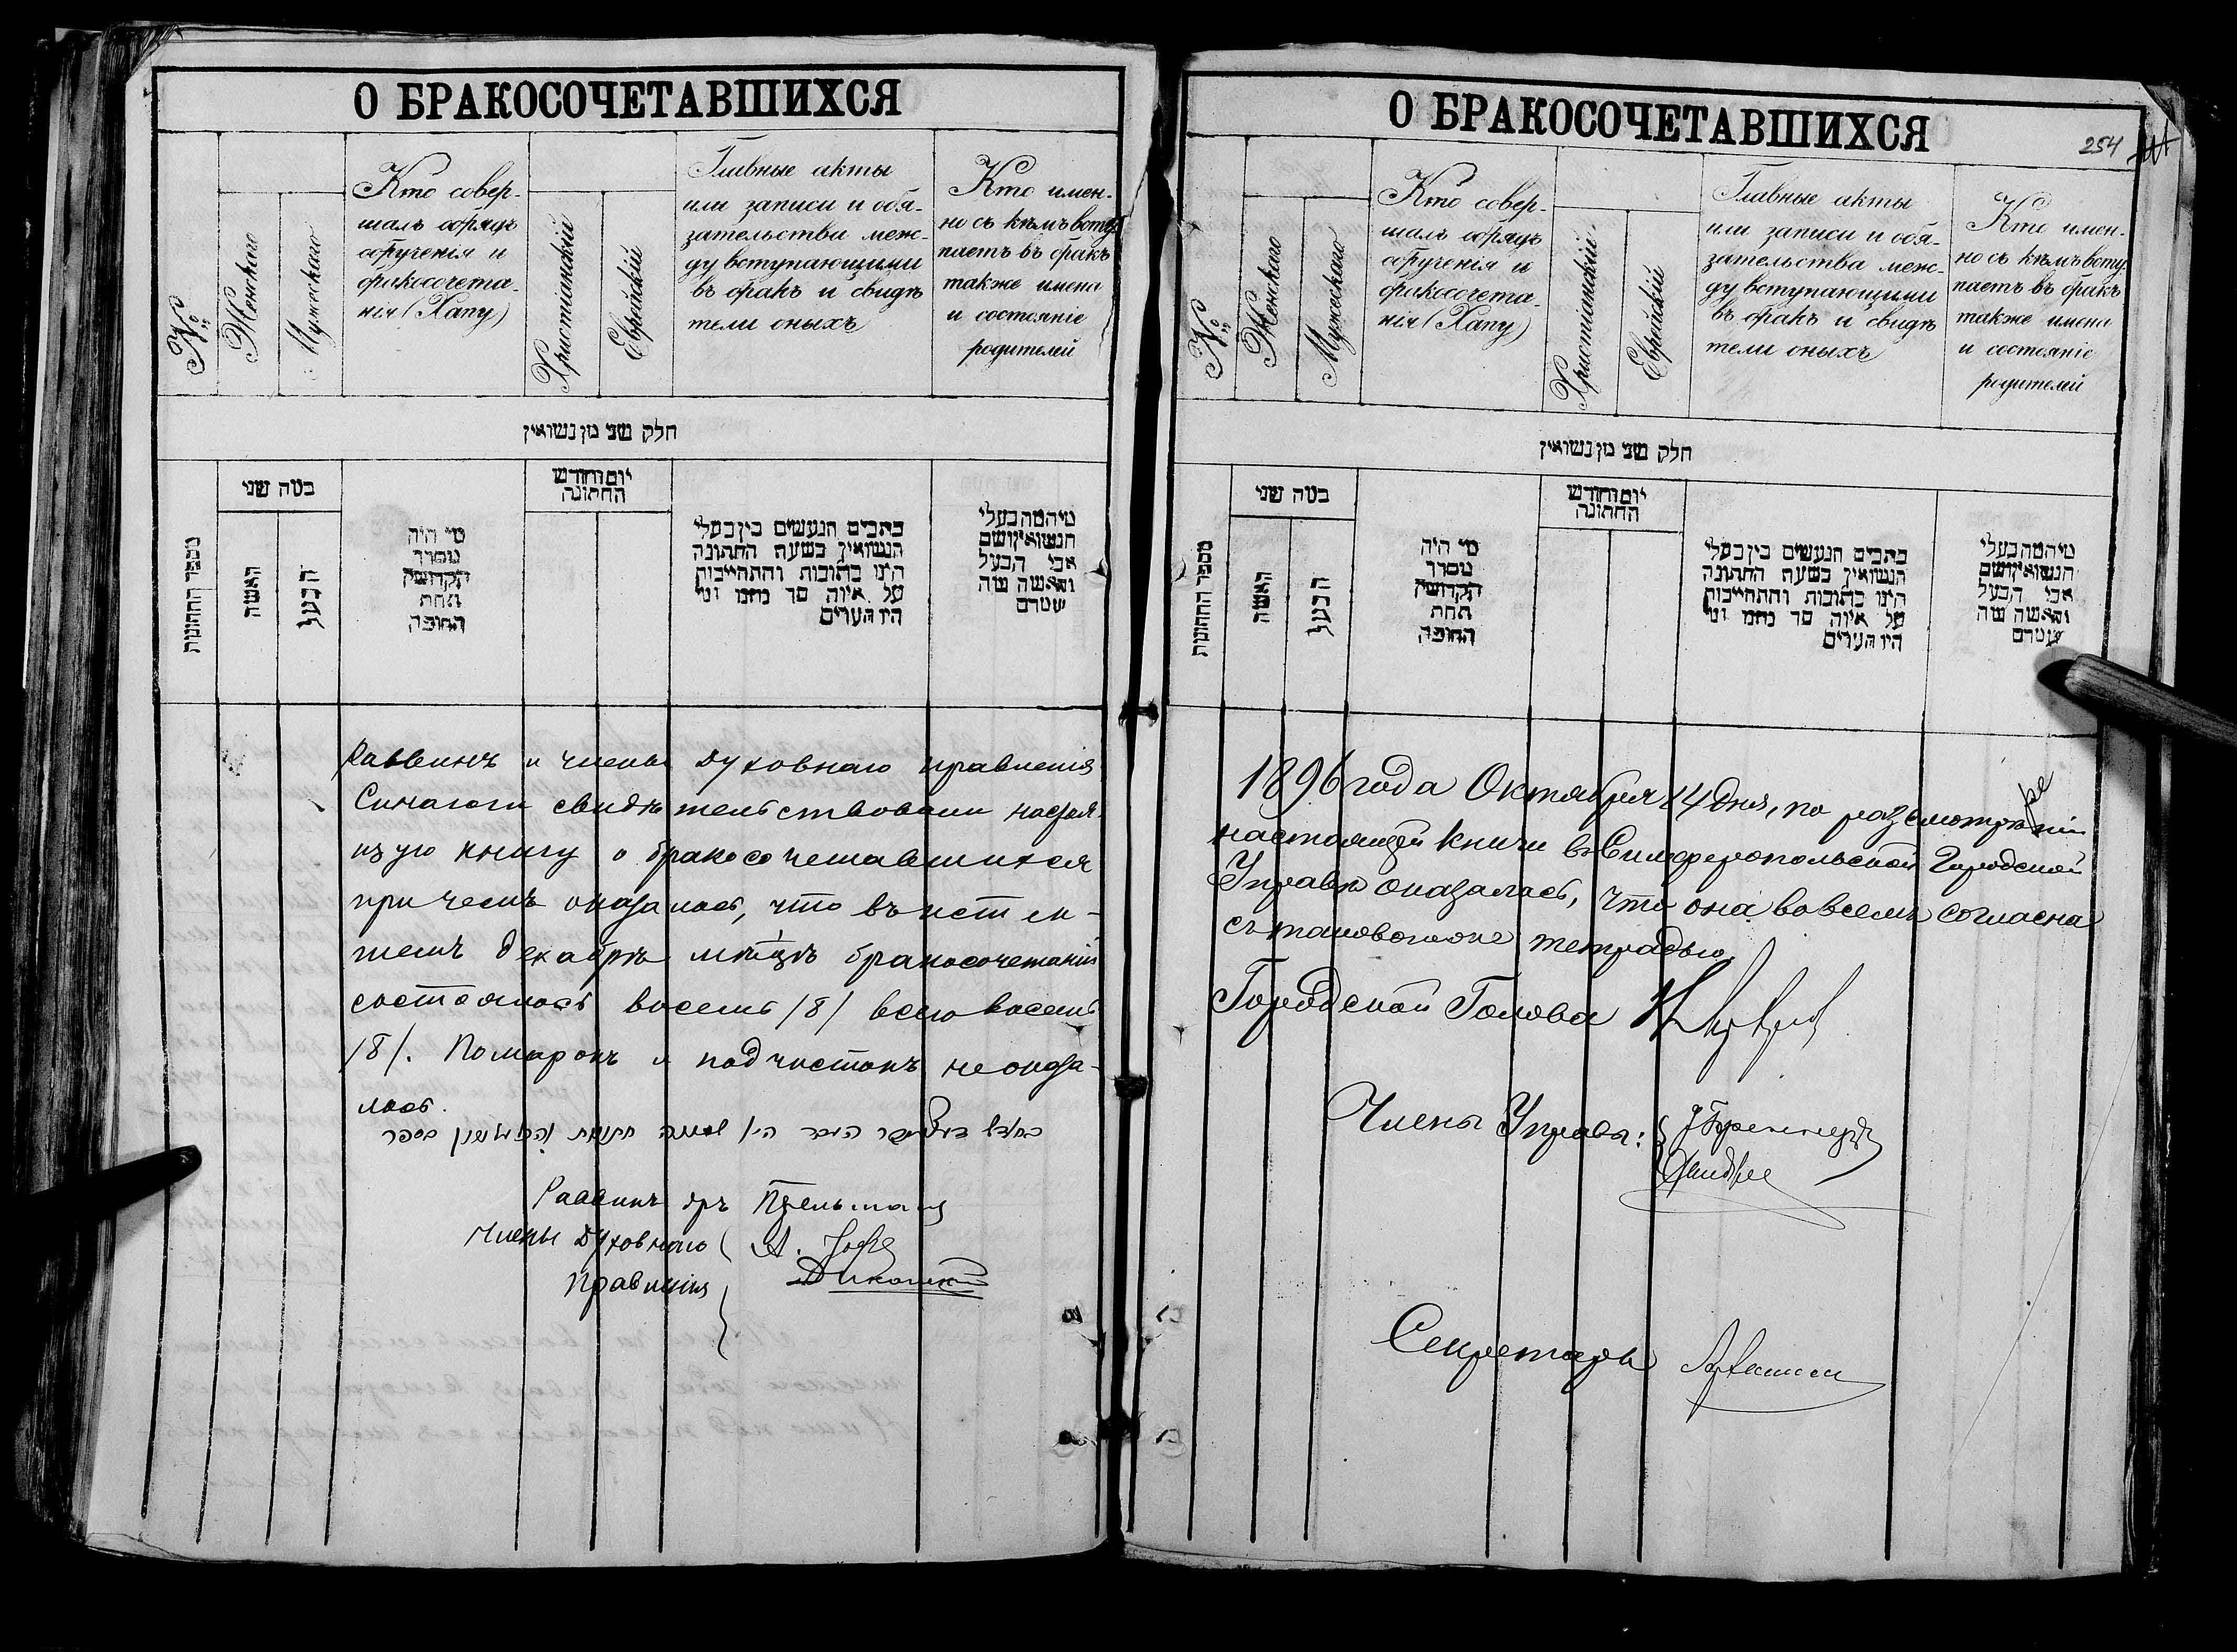 О БРАКОСОЧЕТАВШИХСЯ
№
Женскаго
Мужескаго
Кто совер-
шалъ обрядъ
обрученія и
бракосочета-
нія (Хапу)
Христіанскій
Еврейскій
Главные акты
или записи и обя-
зательства меж-
ду вступающими
въ бракъ и свидѣ
тели оныхъ
Кто имен-
но съ кѣмъ всту
паетъ въ бракъ
также имена
и состояніе
родителей
חלק שני מן נשואין
מספר החתונות
כמה שני
האשה
הבעל
מי היה
מסדר
הקדושין
תחת
החופה
יום וחודש
החתונה
כתבים הנעשים בין בעלי
הנשואין בשעת החתונה
היינו כתובות והתחייבות
על איזה סך כתבו ומי
היו העדים
מי המה בעלי
הנשואין ושם
אבי הבעל
והאשה
Раввинъ и члены духовнаго правленія
Синагоги свидѣтельствовали настоя-
щую книгу о бракосочетавшихся
при чемъ оказалось, что въ истек-
шемъ Декабрѣ мѣсяцѣ бракосочетаній
состоялось восемь /8/ всего восемь
/8/. Помарокъ и подчистокъ не оказа-
лось.
Раввинъ
Члены Духовнаго
Правленія
О БРАКОСОЧЕТАВШИХСЯ
254
№
Женскаго
Мужескаго
Кто совер-
шалъ обрядъ
обрученія и
бракосочета-
нія (Хапу)
Христіанскій
Еврейскій
Главные акты
или записи и обя-
зательства меж-
ду вступающими
въ бракъ и свидѣ
тели оныхъ
Кто имен-
но съ кѣмъ всту
паетъ въ бракъ
также имена
и состояніе
родителей
חלק שני מן נשואין
מספר החתונות
כמה שני
האשה
הבעל
מי היה
מסדר
הקדושין
תחת
החופה
יום וחודש
החתונה
כתבים הנעשים בין בעלי
הנשואין בשעת החתונה
היינו כתובות והתחייבות
על איזה סך כתבו ומי
היו העדים
מי המה בעלי
הנשואין ושם
אבי הבעל
והאשה
1896 года Октября 14 дня, по разсмотрѣніи
настоящей книги въ Симферопольской Городской
Управѣ оказалось, что она во всемъ согласна
съ таковою же тетрадью.
Городской Голова
Члены Управы:
Секретарь